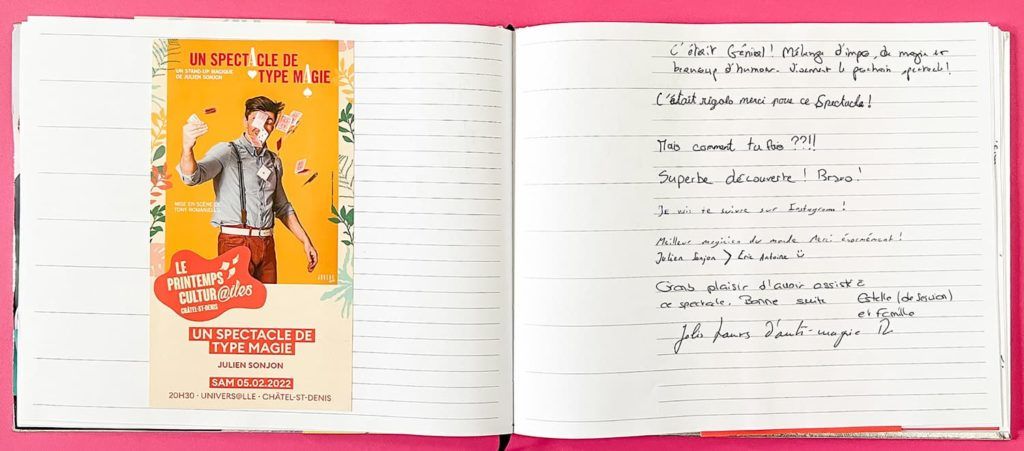 UN SPECTACLE DE
TYPE MAGIE
UN STAND-UP MAGIQUE
DE JULIEN SONJON
MISE EN SCÈNE DE
TONY ROMANIELLO
LE
PRINTEMPS
CULTUR@lles
CHÂTEL-ST-DENIS
UN SPECTACLE DE
TYPE MAGIE
JULIEN SONJON
SAM 05.02.2022
20H30 · UNIVERS@LLE · CHÂTEL-ST-DENIS
C'était Génial ! Mélange d'impro, de magie et
beaucoup d'humour. Vivement le prochain spectacle !
C'était rigolo merci pour ce Spectacle !
Mais comment tu fais ??!!
Superbe découverte ! Bravo !
Je vais te suivre sur Instagram !
Meilleur magicien du monde Merci énormément !
Julien Sonjon > Eric Antoine
Gros plaisir d'avoir assisté à
ce spectacle. Bonne suite Estelle (de Servion)
et famille
d'anti-magie